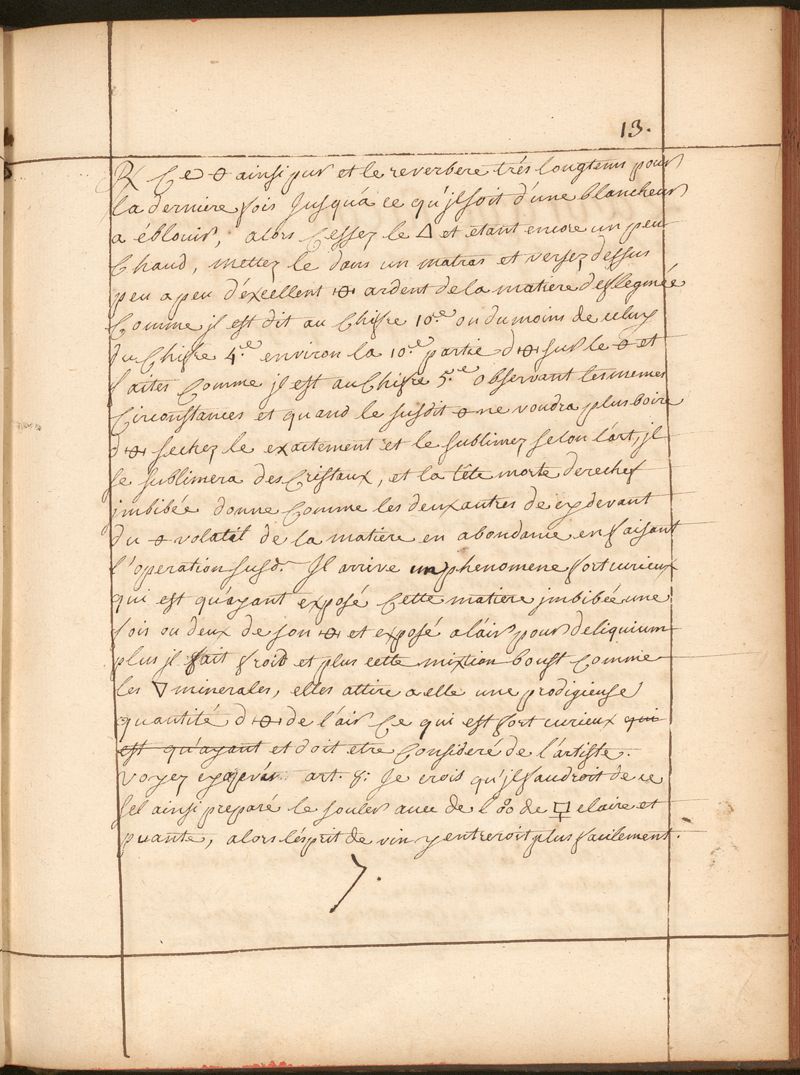 13.
℞ Ce 🜔 ainsi pur et le reverbere trés longtems pour
la derniere fois Jusqu'a ce qu'jl soit d'une blancheur
a éblouir, alors Cessez le 🜂 et etant encore un peu
Chaud, mettez le dans un matras et versez dessus
peu a peu d'excellent 🜔 ardent de la matiere deflegmée
Comme jl est dit au Chifre 10.e ou du moins de celuy
du Chifre 4.e environ la 10.e partie d 🜔 sur le 🜔 et
faites Comme jl est au Chifre 5.e observant les memes
Circonstances et quand le susdit 🜔 ne voudra plus boire
d 🜔 sechez le exactement et le sublimez selon l'art, jl
se sublimera des Cristaux, et la tête morte derechef
jmbibée donne Comme les deux autres de cy devant
du 🜔 volatil de la matiere en abondance en faisant
l'operation susd.e Jl arrive un phenomene fort curieux
qui est qu'ayant exposé Cette matiere jmbibée une
fois ou deux de son 🜔 et exposé a l'air pour deliquium
plus jl fait froid et plus cette mixtion boust Comme
les 🜄 minerales, elles attire a elle une prodigieuse
quantité d 🜔 de l'air Ce qui est fort curieux qui
est qu'ayant et doit etre Consideré de l'artiste.
Voyez art. 8: Je crois qu'jl faudroit de ce
sel ainsi preparé le souler avec de l'🝆 de 🜿 claire et
puante, alors l'esprit de vin y entreroit plus facilement.
7.